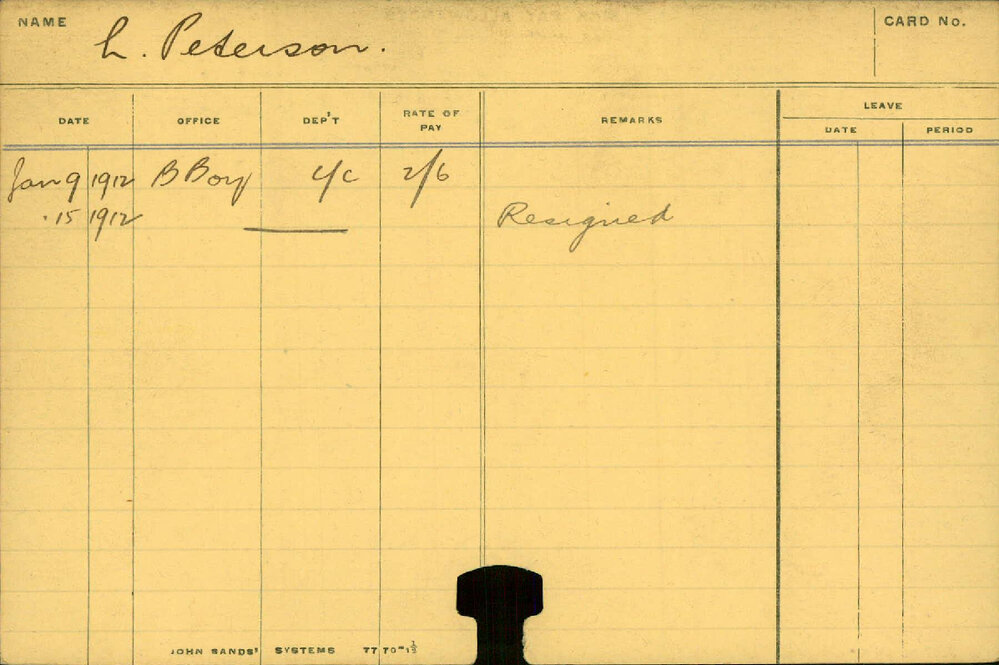 NAME
L. Peterson.
CARD No.
DATE OFFICE DEP'T RATE OF PAY REMARKS LEAVE
DATE PERIOD
Jan 9 1912 B Boy L/C 2/6
" 15 1912 Resigned
JOHN SANDS' SYSTEMS 77 70